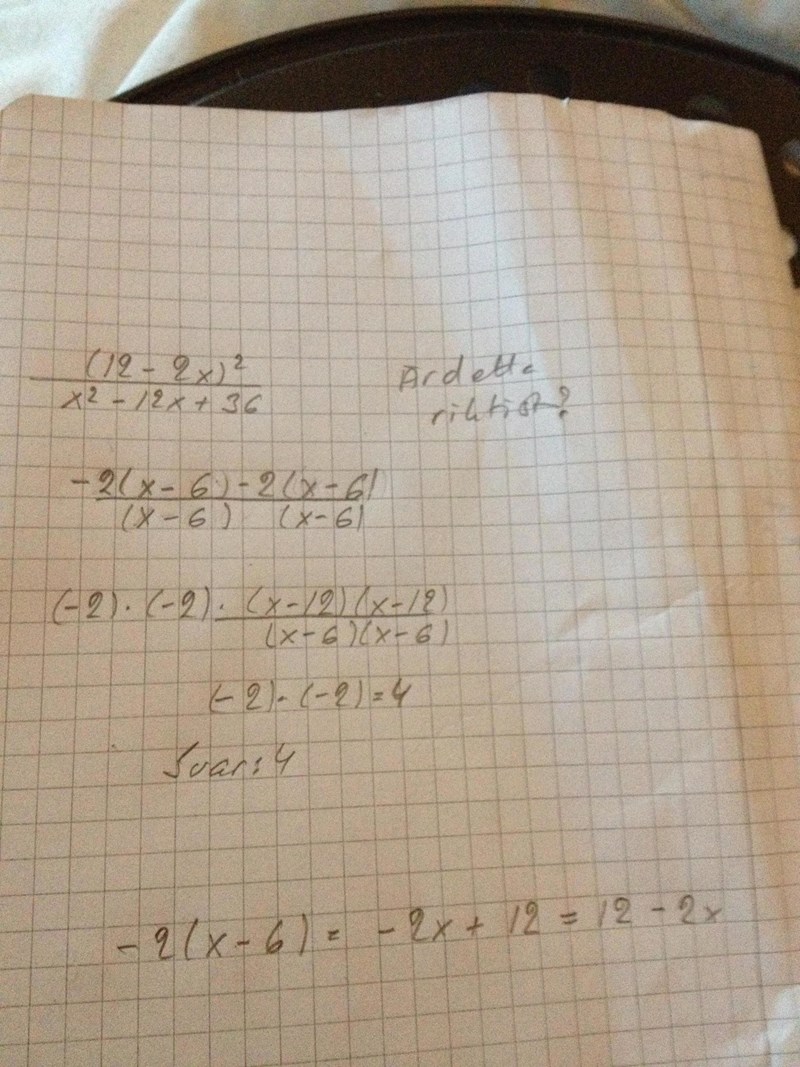 (12 - 2x)²
x² - 12x + 36
Är detta
riktigt?
-2(x-6) -2(x-6)
(x-6) (x-6)
(-2)·(-2)· (x-12)(x-12)
(x-6)(x-6)
(-2)·(-2)=4
Svar: 4
-2(x-6) = -2x + 12 = 12 - 2x